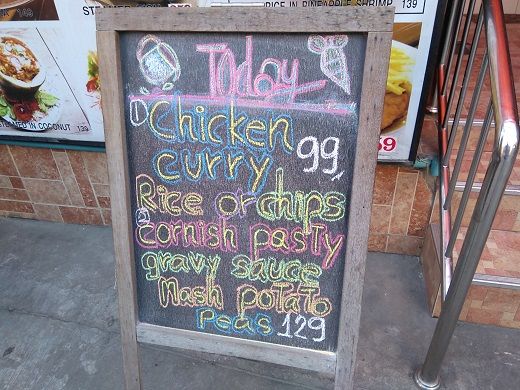 RICE IN PINEAPPLE SHRIMP 139
169
STEAMED IN COCONUT 139
Today
① Chicken
curry 99,
Rice or chips
② cornish pasty
gravy sauce
Mash potato
Peas 129